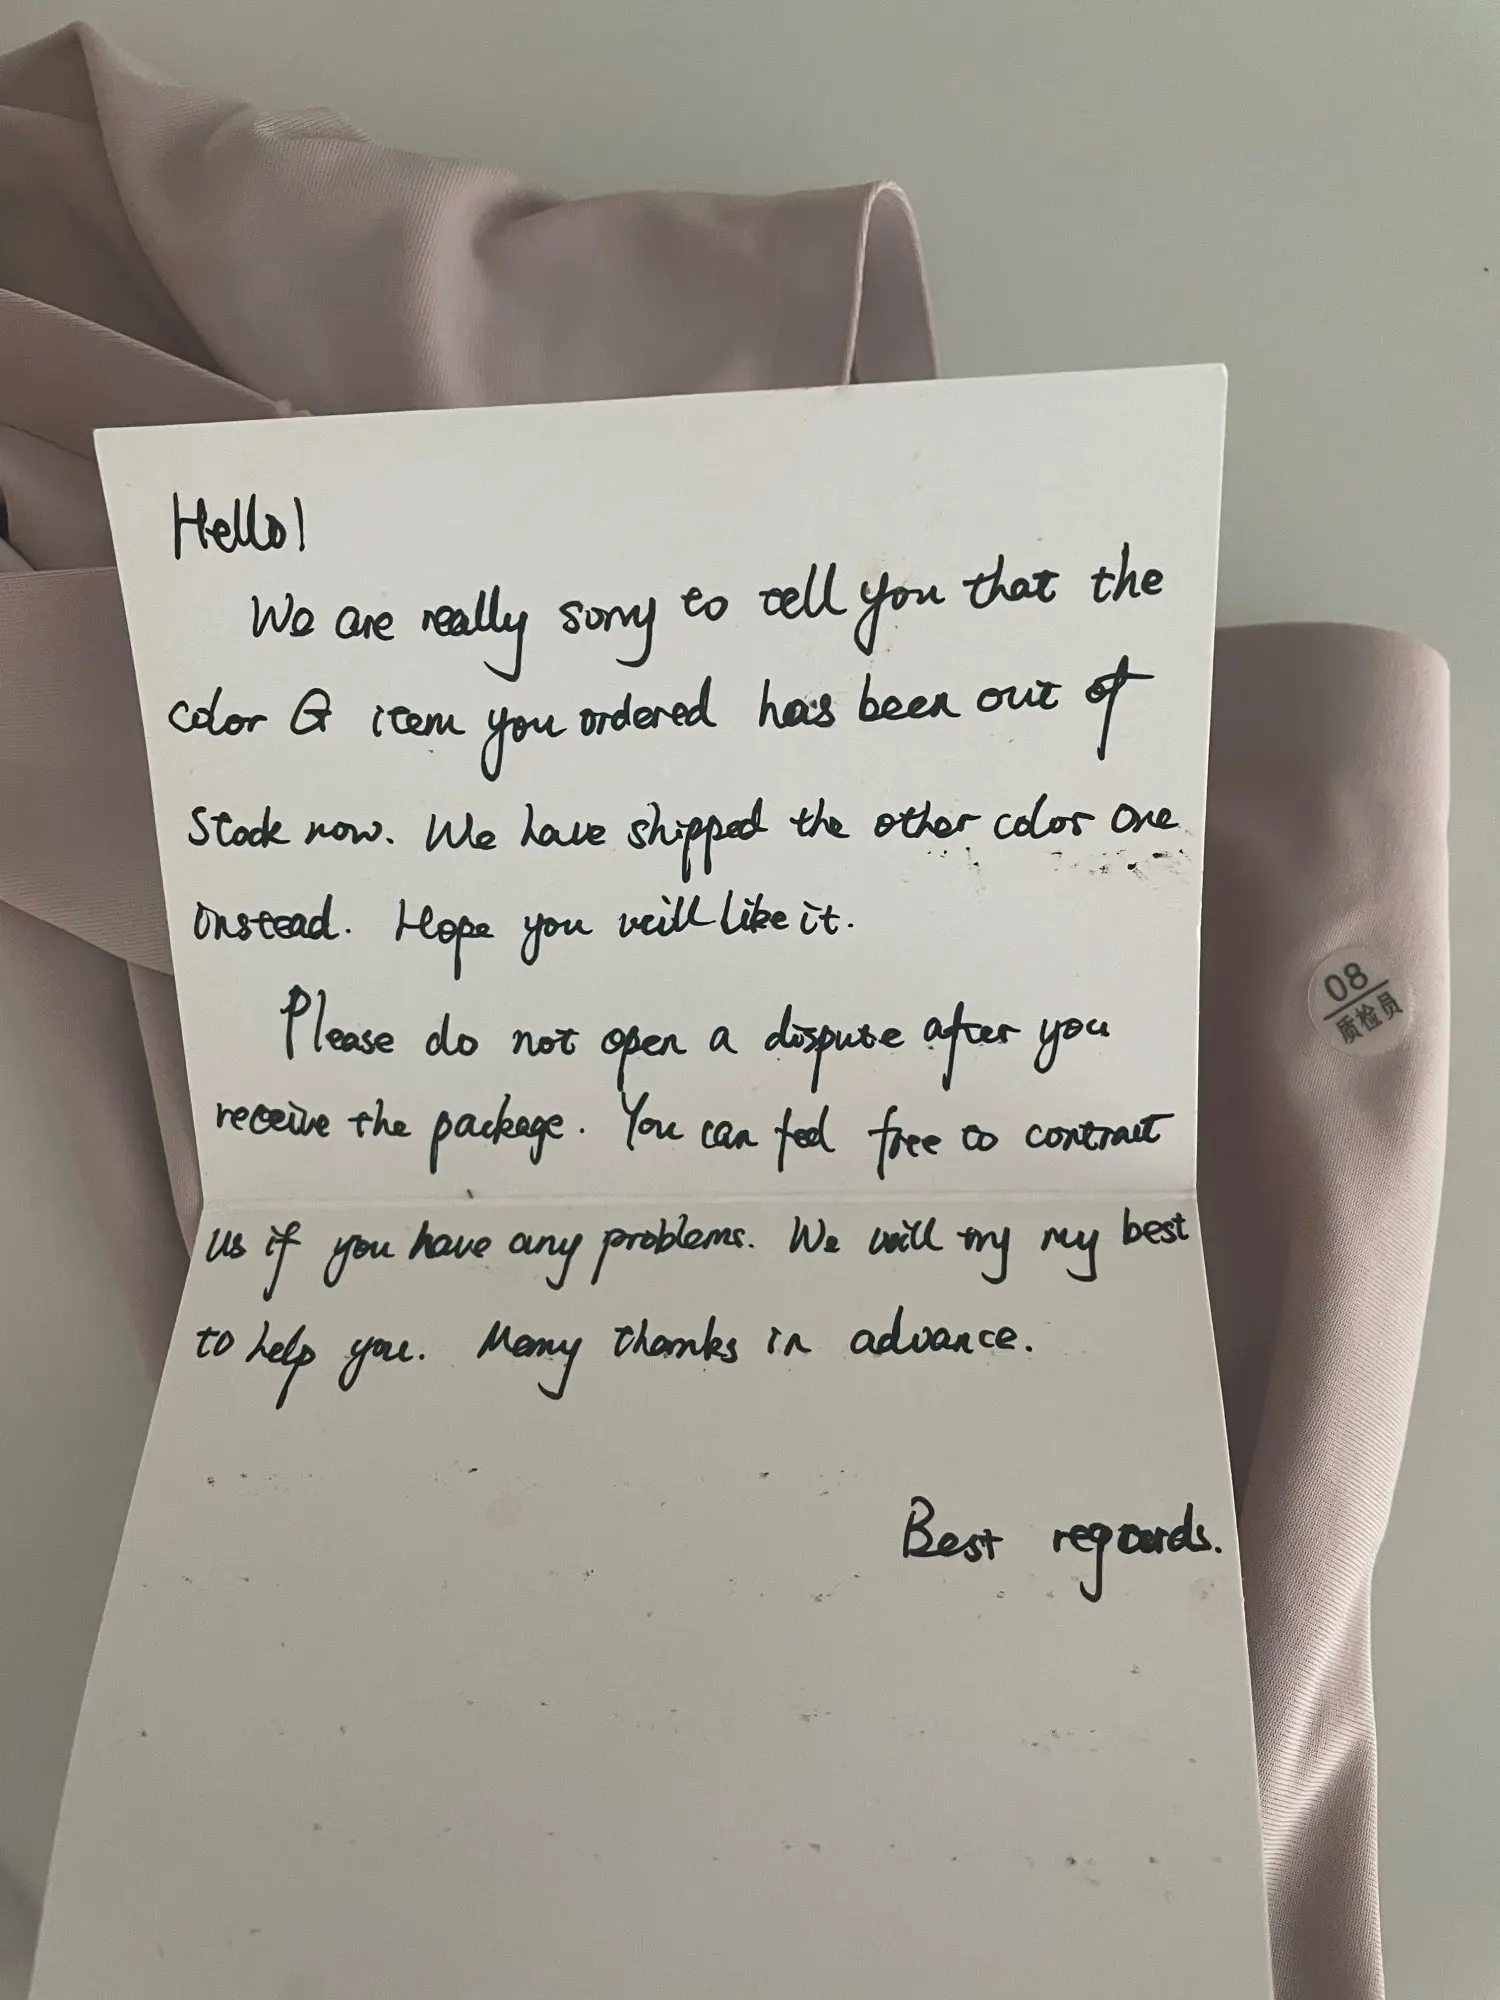 Hello!
We are really sorry to tell you that the
color G item you ordered has been out of
stock now. We have shipped the other color one
instead. Hope you will like it.
Please do not open a dispute after you
receive the package. You can feel free to contract
us if you have any problems. We will try my best
to help you. Many thanks in advance.
Best regards.
08
质检员